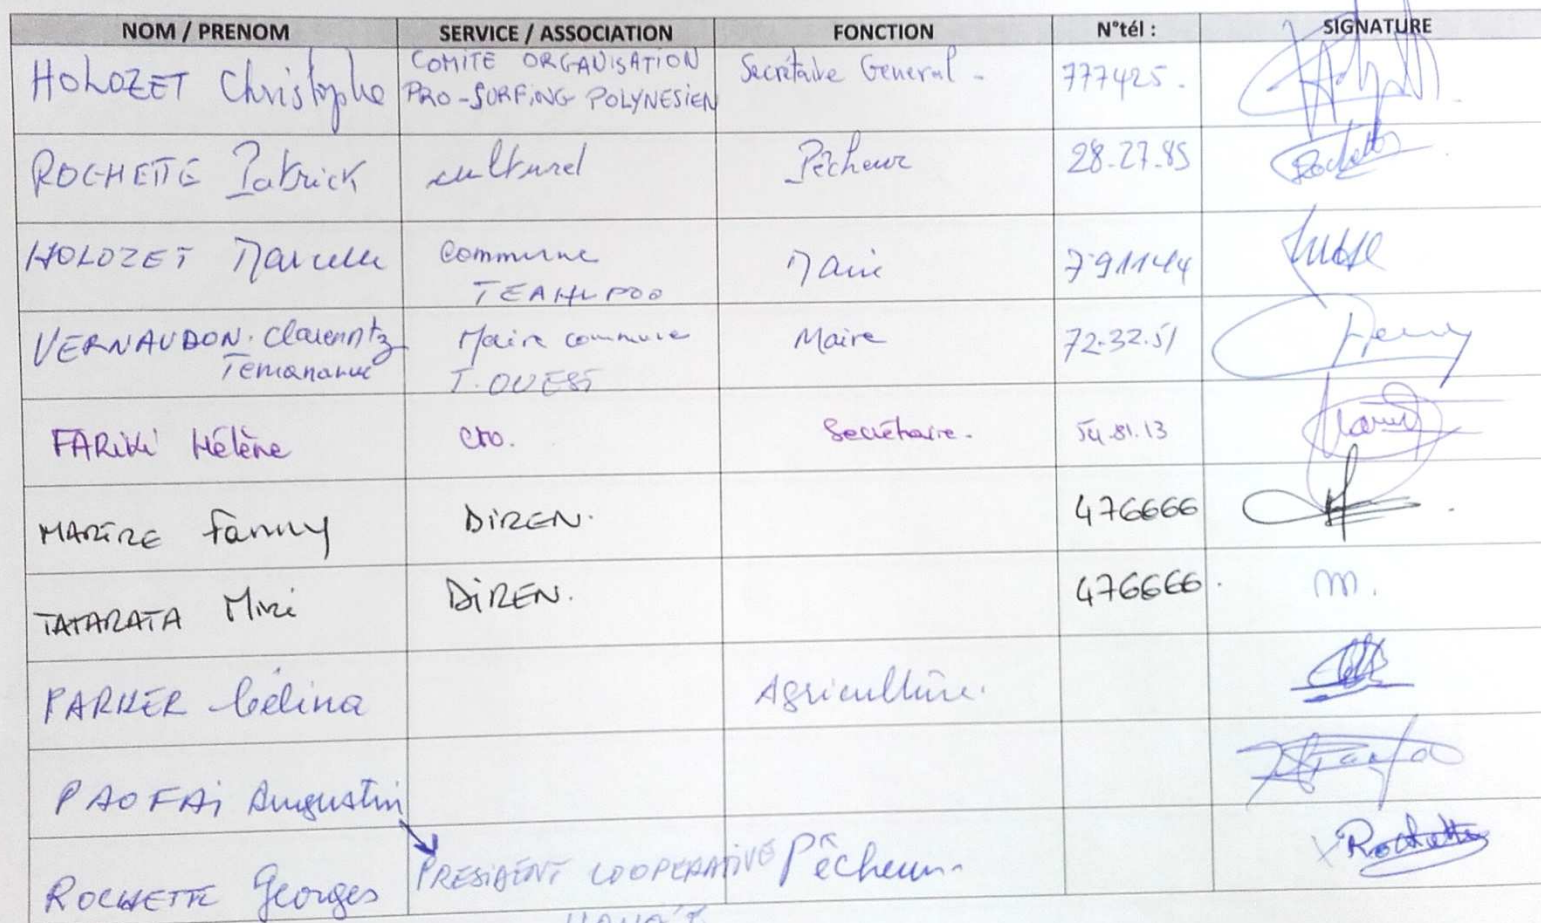 NOM / PRENOM SERVICE / ASSOCIATION FONCTION N°tél : SIGNATURE
HOLOZET Christophe COMITE ORGANISATION PRO-SURFING POLYNESIEN Secrétaire General - 777425.
ROCHETTE Patrick culturel Pêcheur 28.27.85 Rochette
HOLOZET Marcelle Commune TEAHUPOO Maire 791144
VERNAUDON. Clarenntz Temananue Maire commune T. OUEST Maire 72.32.51
FARIKI Hélène CTO. Secrétaire. 54.81.13
MARERE Fanny DIREN. 476666
TATARATA Miri DIREN. 476666. m.
PARKER Célina Agriculture.
PAOFAI Augustin
ROCHETTE Georges PRESIDENT COOPERATIVE Pêcheur. Rochette